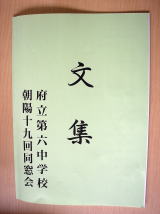 文集
府立第六中学校
朝陽十九回同窓会